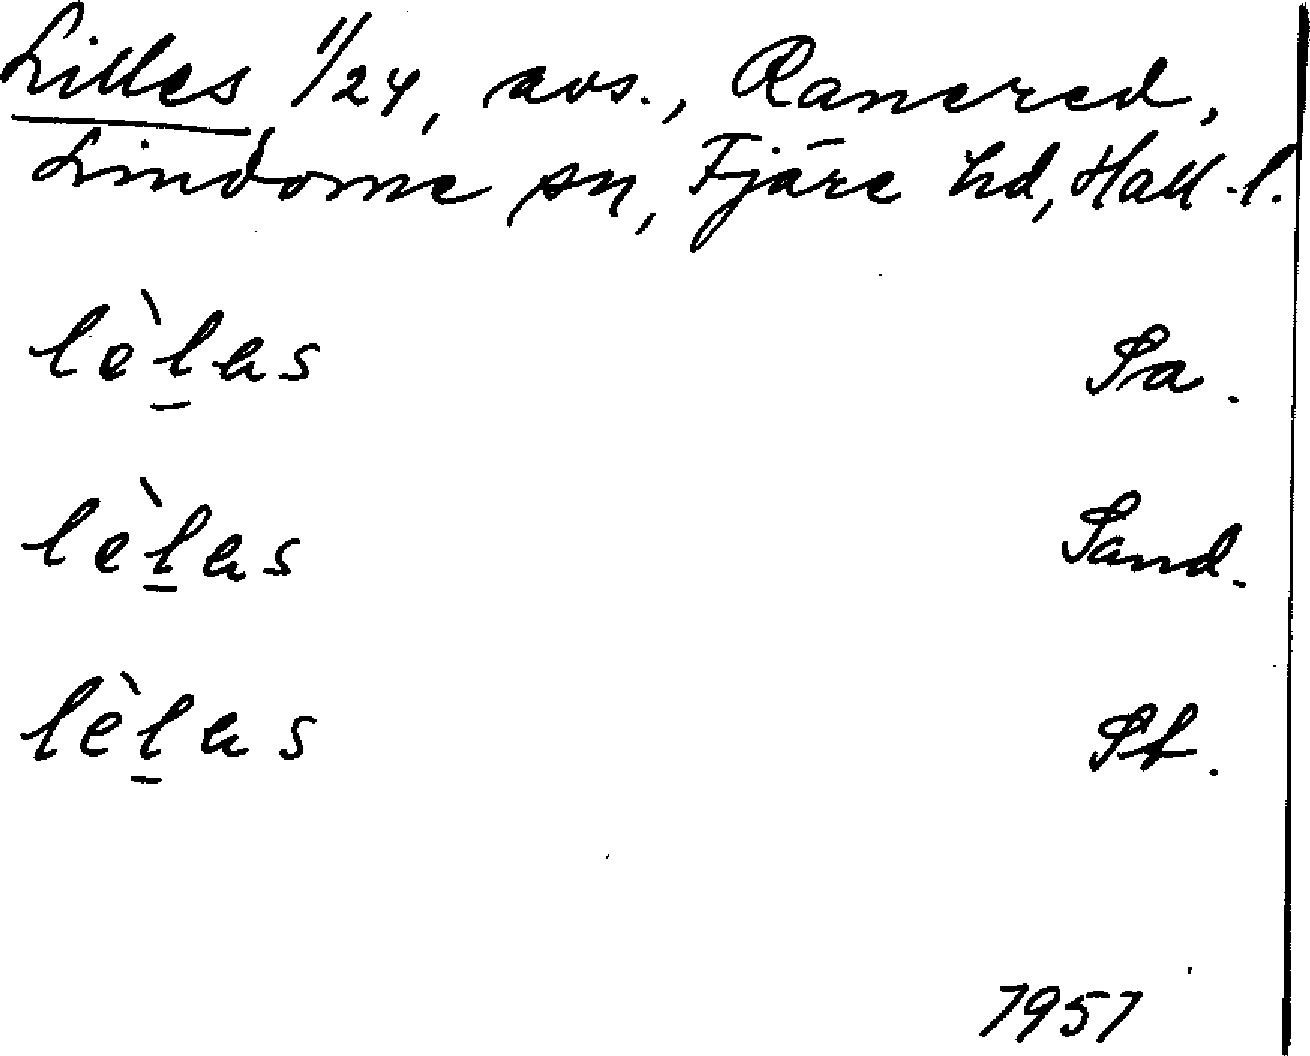 Lilles 1/24, avs., Ranered,
Lindome sn, Fjäre hd, Hall. l.
lèl̠as Sa.
lèl̠as Sand.
lèl̠as St.
1951